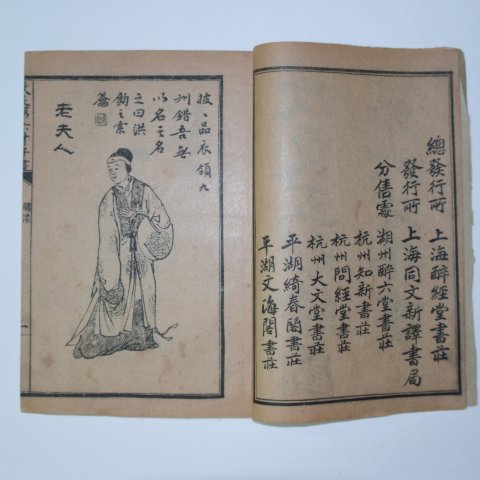 總發行所 上海醉經堂書莊
發行所 上海同文新譯書局
分售處 湖州醉六堂書莊
杭州知新書莊
杭州問經堂書莊
杭州大文堂書莊
平湖綺春閣書莊
平湖文海閣書莊
披一品衣領九
州錯吾無
以名之名
之曰洪
鈞之霖
老夫人